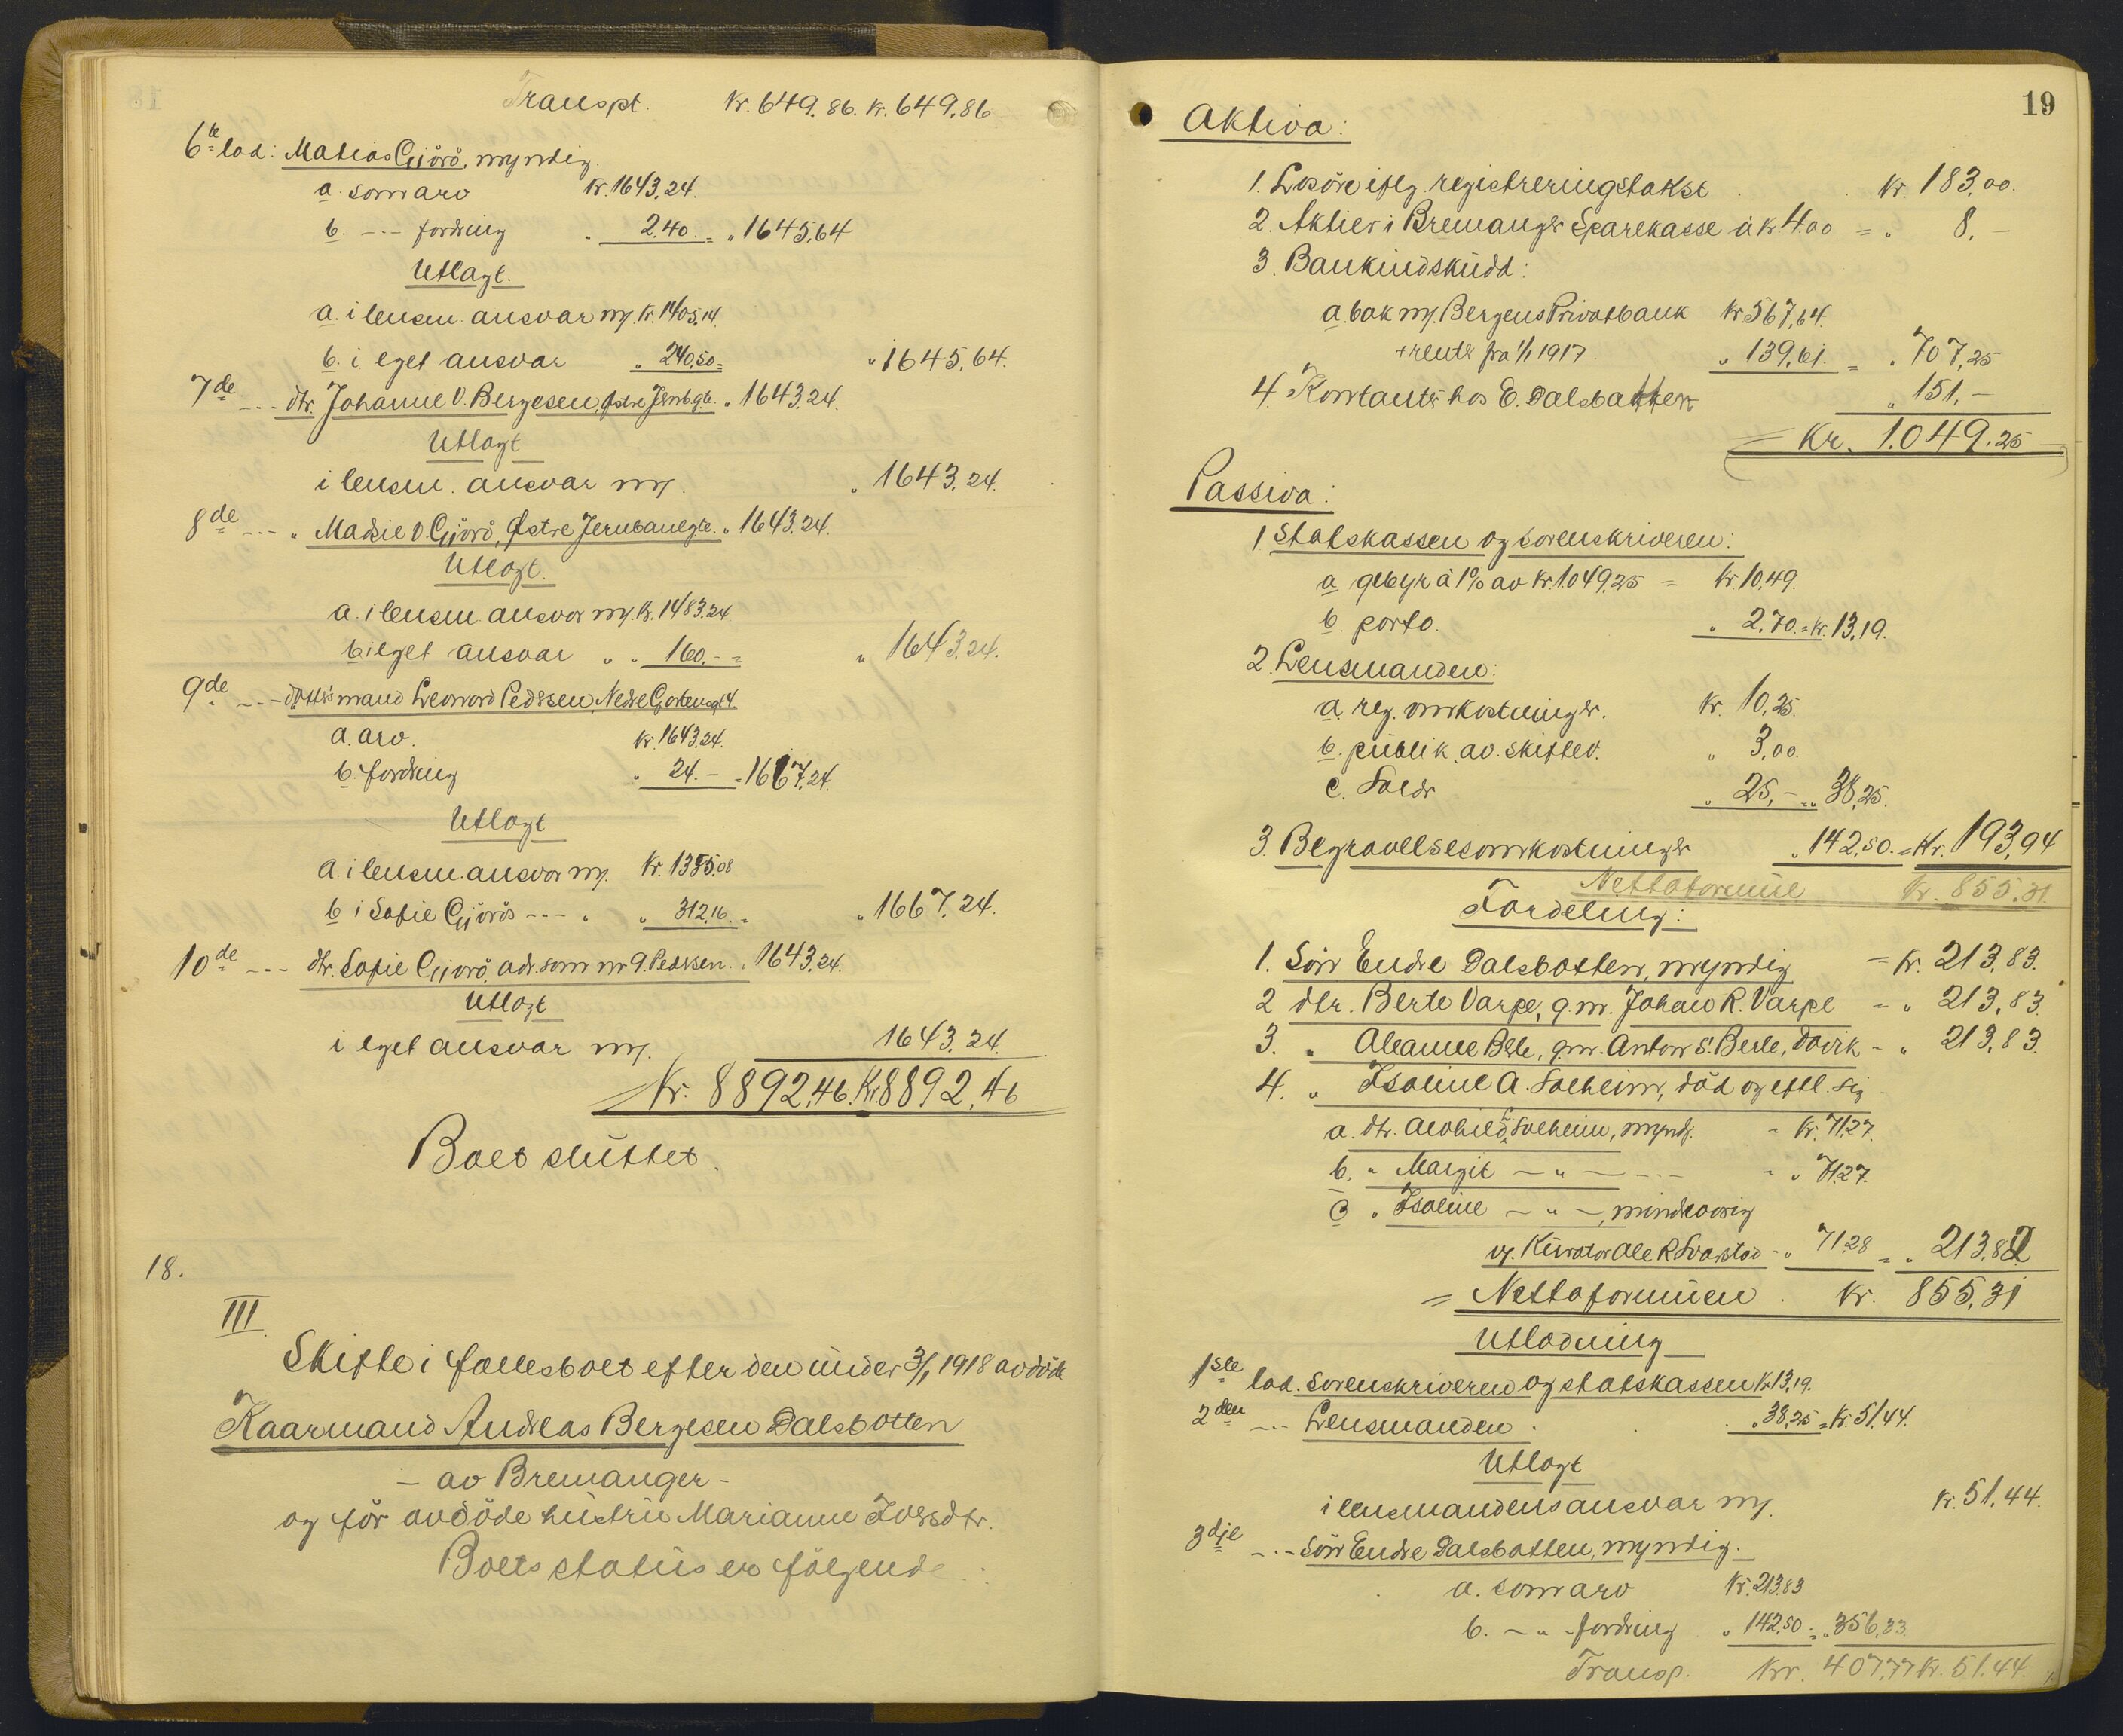 Transpt. Kr. 649.86. Kr. 649.86
6te lod: Matias Gjörö, myndig.
a. som arv Kr. 1643.24.
b. -..- fordring " 2.40 = " 1645,64
Utlagt.
a. i lensm. ansvar m/. Kr. 1405,14.
b. i eget ansvar " 240,50 = " 1645,64.
7de -..- dtr. Johanne V. Bergesen, Östre Jernb.gt. " 1643.24.
Utlagt
i lensm. ansvar m/. " 1643.24.
8de -..- " Madsie V. Gjörö, Østre Jernbanegte. " 1643.24.
Utlagt.
a. i lensm. ansvar m/. Kr. 1483.24
b i eget ansvar " " 160.- = " 1643.24.
9de -..- dötters mand Leonard Pedersen, Nedre
a. arv. Kr. 1643.24.
b. fordring " 24.- = 1667,24.
Utlagt
a. i lensm. ansvar m/. Kr. 1355.08
b i Sofie Gjörös -..- " " 312,16 = " 1667.24.
10de -..- dtr. Sofie Gjörö, adr. som nr 9. Pedersen. " 1643.24.
Utlagt
i eget ansvar m/. 1643.24.
Kr. 8892,46. Kr. 8892,46
Boet sluttet.
18.
III
Skifte i fællesboet efter den under 3/1 1918 avdöde
Kaarmand Andreas Bergesen Dalsbotten
- av Bremanger -
og för avdöde hustru Marianne Iversdtr.
Boets status er fölgende:
19
Aktiva:
1. Lösöre iflg. registreringstakst Kr. 183,00.
2. Aktier i Bremanger Sparekasse à kr. 4.00 = " 8,-
3. Bankindskudd:
a. bok m/ Bergens Privatbank Kr 567,64.
+ renter fra 1/1 1917 " 139,61. = " 707,25
4. Kontanter hos E. Dalsbotten " 151,-
Kr. 1.049,25
Passiva:
1. Statskassen og sorenskriveren:
a gebyr à 1% av Kr. 1049,25 = Kr. 10,49.
b. porto. " 2,70. = Kr. 13,19.
2. Lensmanden:
a. reg. omkostninger. Kr. 10,25.
b. publik. av. skiftev. " 3,00.
c. Salær " 25,- = " 38,25.
3. Begravelsesomkostninger " 142,50. = Kr. 193,94
Nettoformue Kr. 855.31.
Fordeling:
1. Sön Endre Dalsbotten, myndig = Kr. 213,83.
2 dtr. Berte Varpe, g.m. Johan R. Varpe - " 213,83.
3. " Oleanne Berle, g.m. Anton S. Berle, Davik - " 213,83.
4. " Isaline A. Solheim, död og eftl. sig
a. dtr. Solheim, myndg. = Kr. 71,27.
b. " Margit - " - -..- = " 71,27.
c " Isaline - " -, mindreaarig
v/. Kurator Ole R. Svarstad - " 71,28 = " 213,82
= Nettoformuen Kr. 855,31
Utlodning
1ste lod. Sorenskriveren og statskassen Kr. 13,19.
2den -..- Lensmanden " 38,25 = Kr. 51,44.
Utlagt
i lensmandens ansvar m/. Kr. 51,44.
3dje -..- Sön Endre Dalsbotten, myndig.
a. som arv Kr. 213,83
b. - " - fordring " 142,50 = " 356,33
Transp. Kr. 407,77 Kr. 51.44.